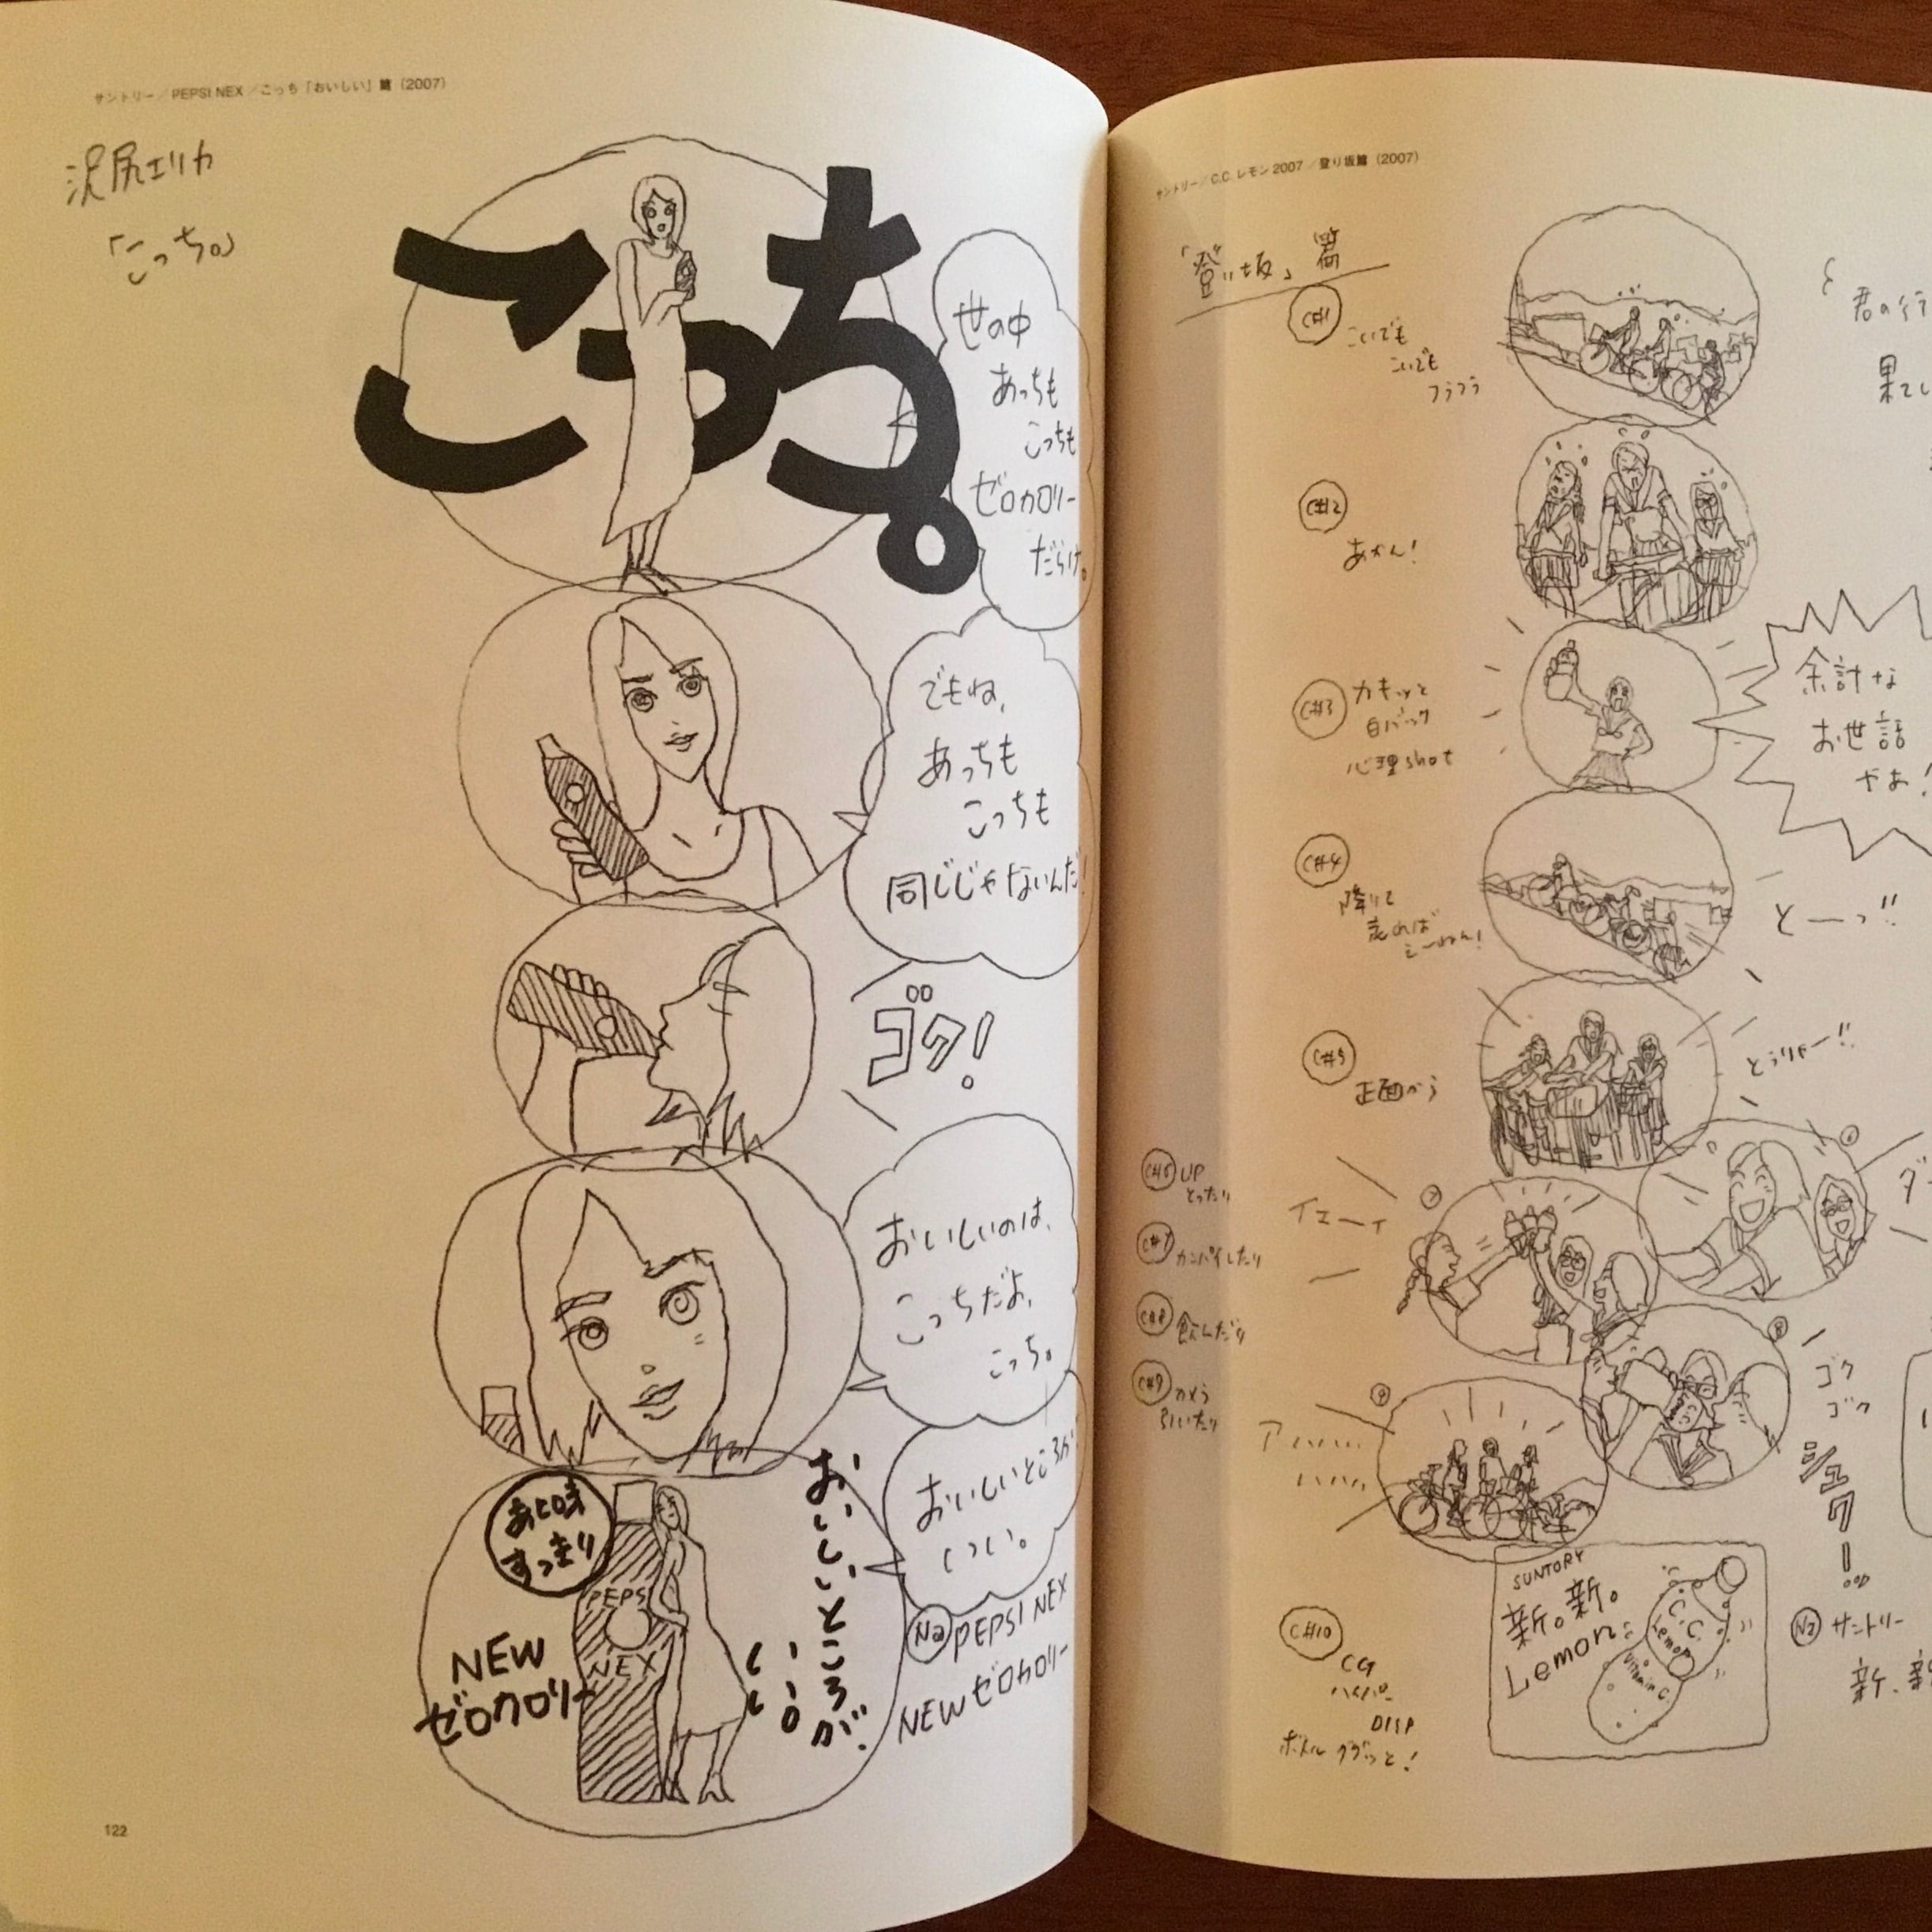 サントリー／PEPSI NEX／こっち「おいしい」篇（2007）
沢尻エリカ
「こっち。」
こっち。
世の中
あっちも
こっちも
ゼロカロリー
だらけ。
でもね、
あっちも
こっちも
同じじゃないんだ!
ゴク!
おいしいのは、
こっちだよ、
こっち。
おいしいところが
いい。
あと味
すっきり
おいしいところが、
いい。
PEPSI
NEX
NEW
ゼロカロリー
Na PEPSI NEX
NEWゼロカロリー
122
サントリー／C.C.レモン2007／登り坂篇（2007）
「登り坂」篇
C#1
こいでも
こいでも
フラフラ
君の行
果てし
C#2
あかん!
C#3 カキッと
白バック
心理shot
余計な
お世話
やぁ!
C#4
降りて
走れば
えーねん!
とーっ!!
C#5
正面から
とうりゃー!!
C#6 UP
とったり
C#7 カンパイしたり
C#8 飲んだり
C#9
引いたり
イエーイ
ゴク
ゴク
アハハハ…
ハハハ…
C#10
CG
DISP
ボトル ググッと!
SUNTORY
新。新。
Lemon
C.C.
Lemon
Vitamin C
Na サントリー
新、新